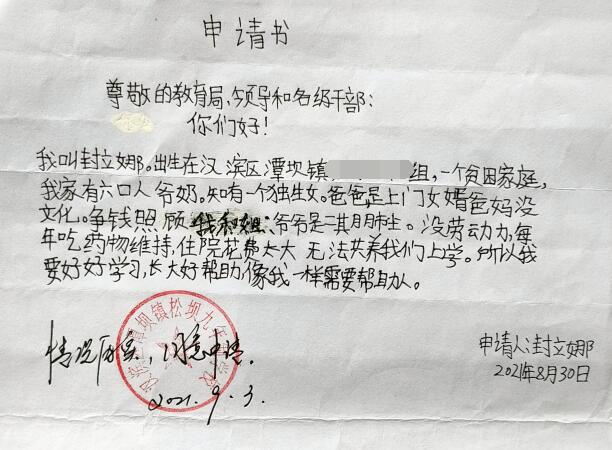 申请书
尊敬的教育局、领导和各级干部：
你们好！
我叫封立娜。出生在汉滨区潭坝镇 组，一个贫困家庭，
我家有六口人爷奶。知有一个独生女。爸爸是上门女婿爸妈没
文化。争钱照顾我和姐；爷爷是二其月市生。没劳动力，每
年吃药物维持，住院花费太大无法共养我们上学。所以我
要好好学习，长大好帮助像我一样需要帮助人。
情况属实，同意申请。
2021.9.3.
申请人：封立娜
2021年8月30日